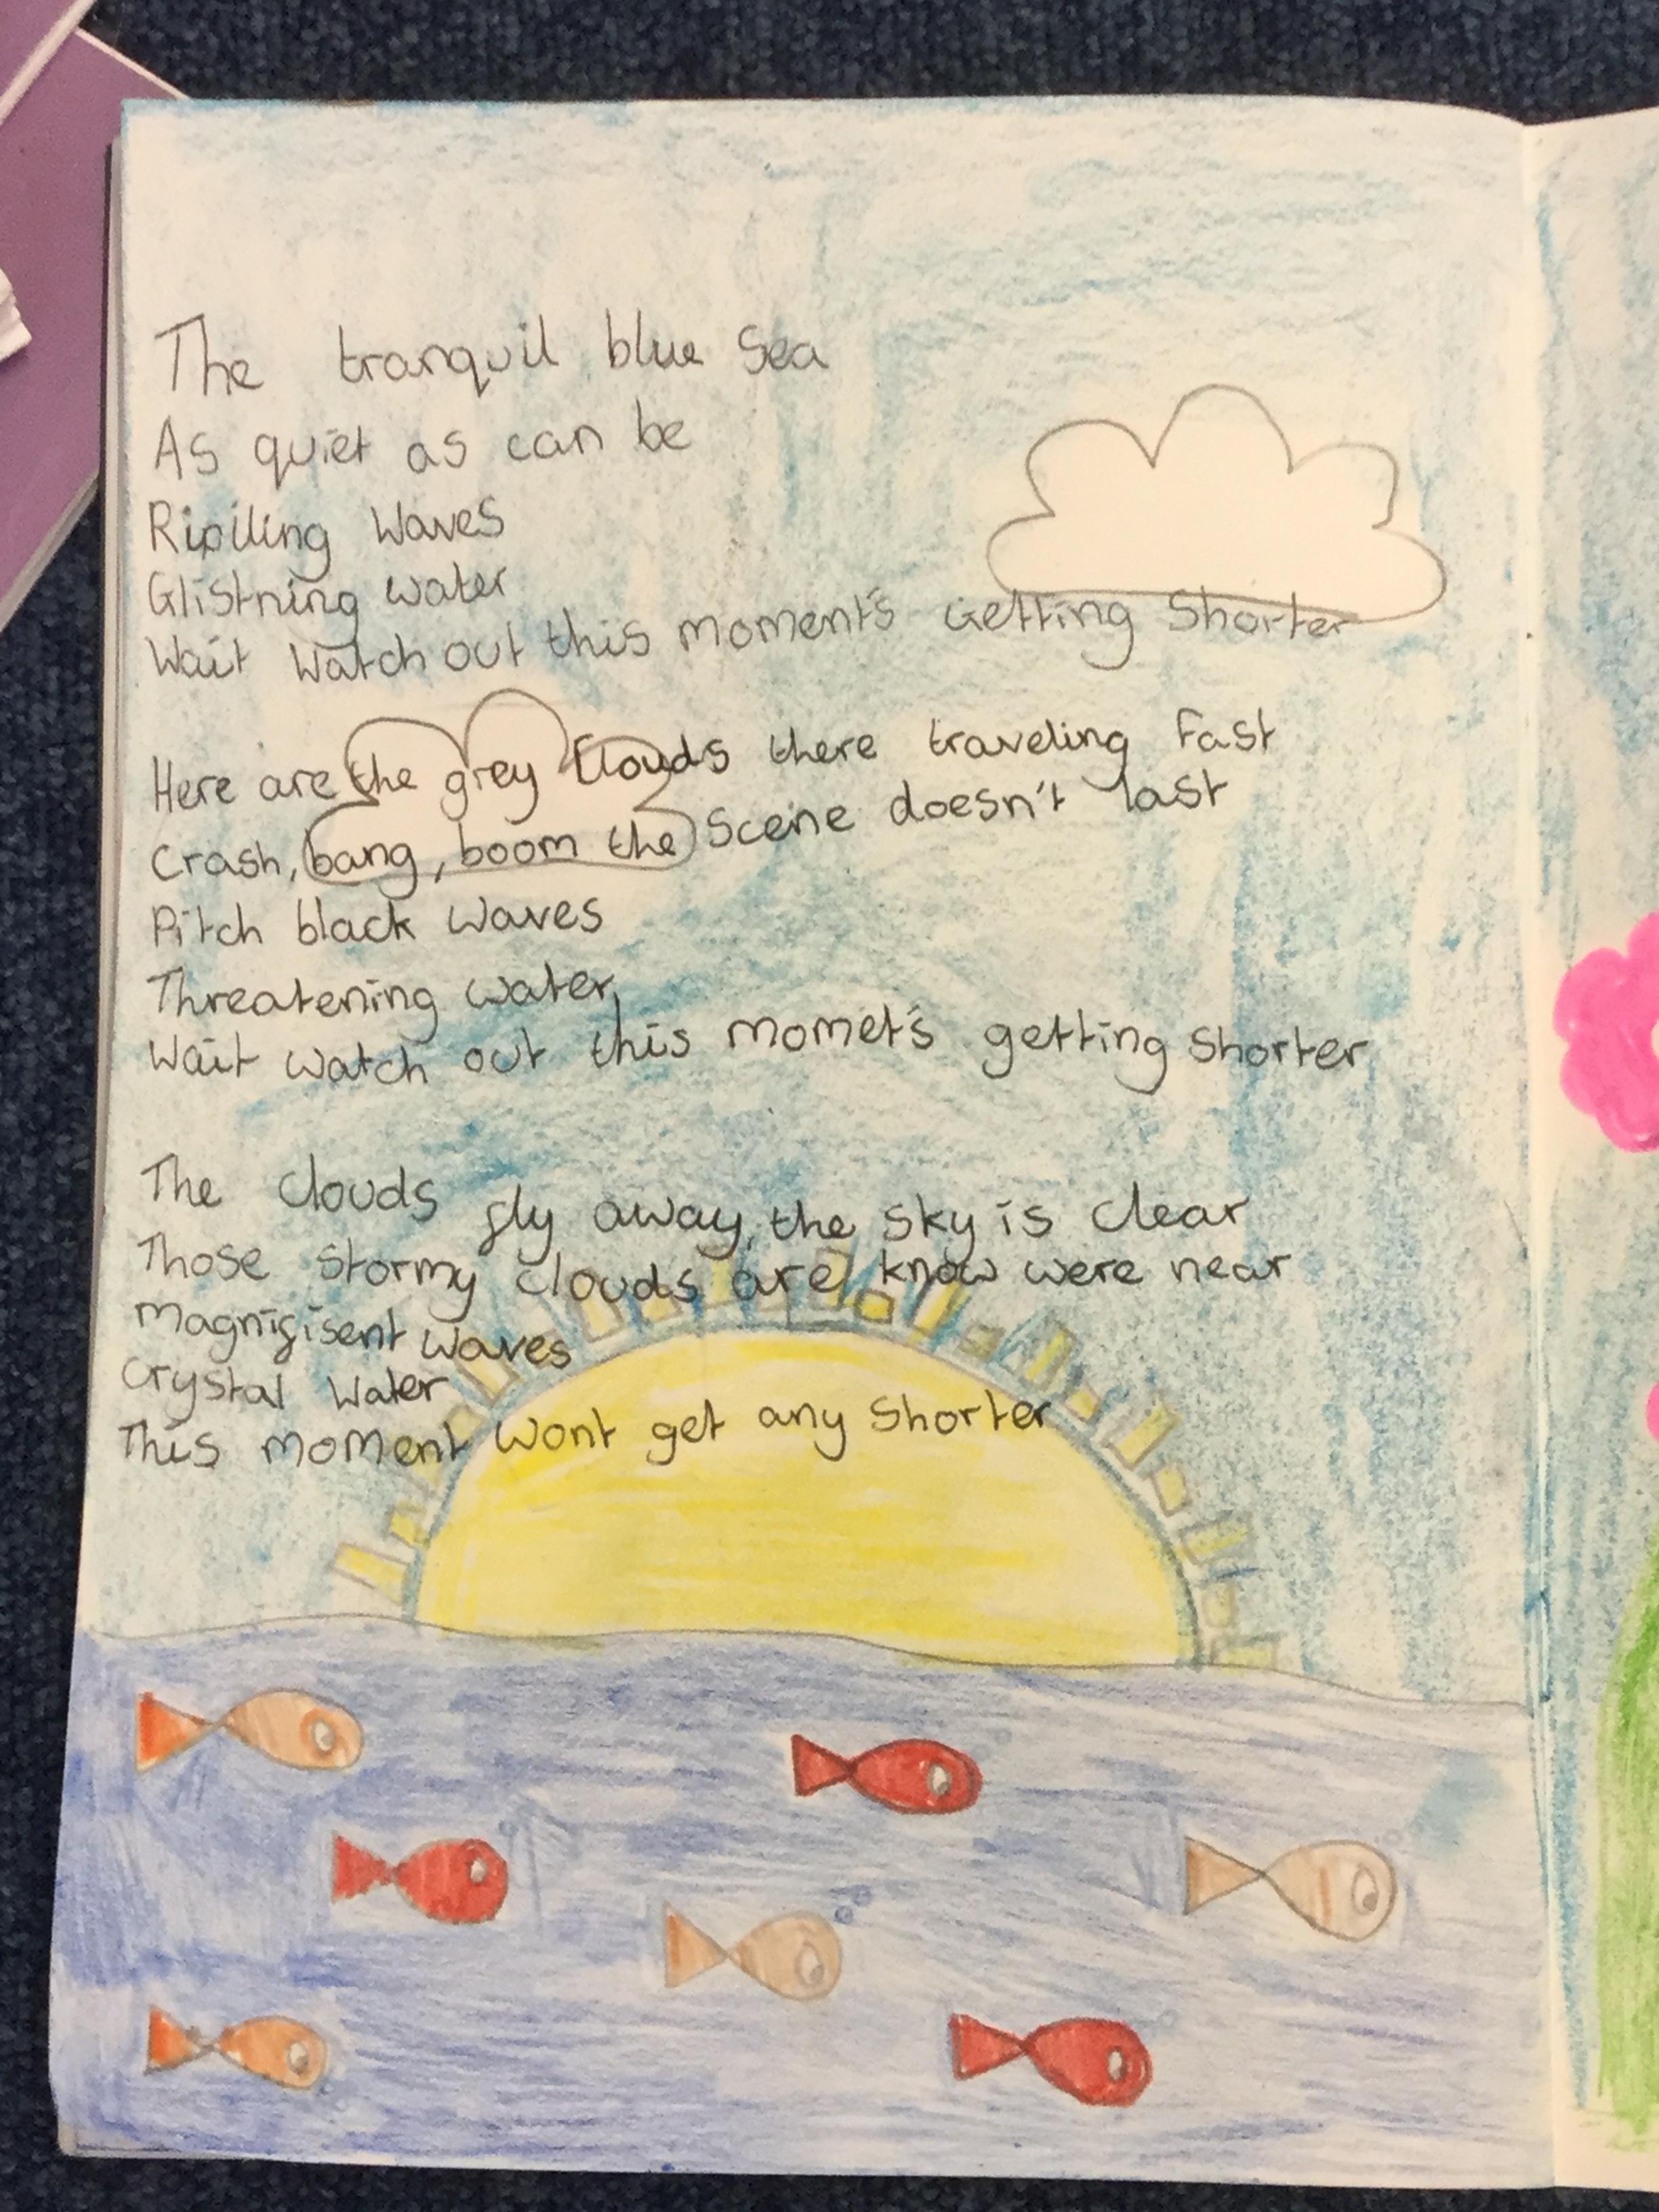 The tranquil blue Sea
As quiet as can be
Ripiling Waves
Glistning water
Wait Watch out this moment's Getting Shorter
Here are the grey Clouds there traveling Fast
Crash, bang, boom the Scene doesn't last
Pitch black waves
Threatening water,
Wait watch out this momet's getting shorter
The clouds fly away, the sky is clear
Those stormy clouds are know were near
Magnifisent waves
Crystal Water
This moment Wont get any Shorter